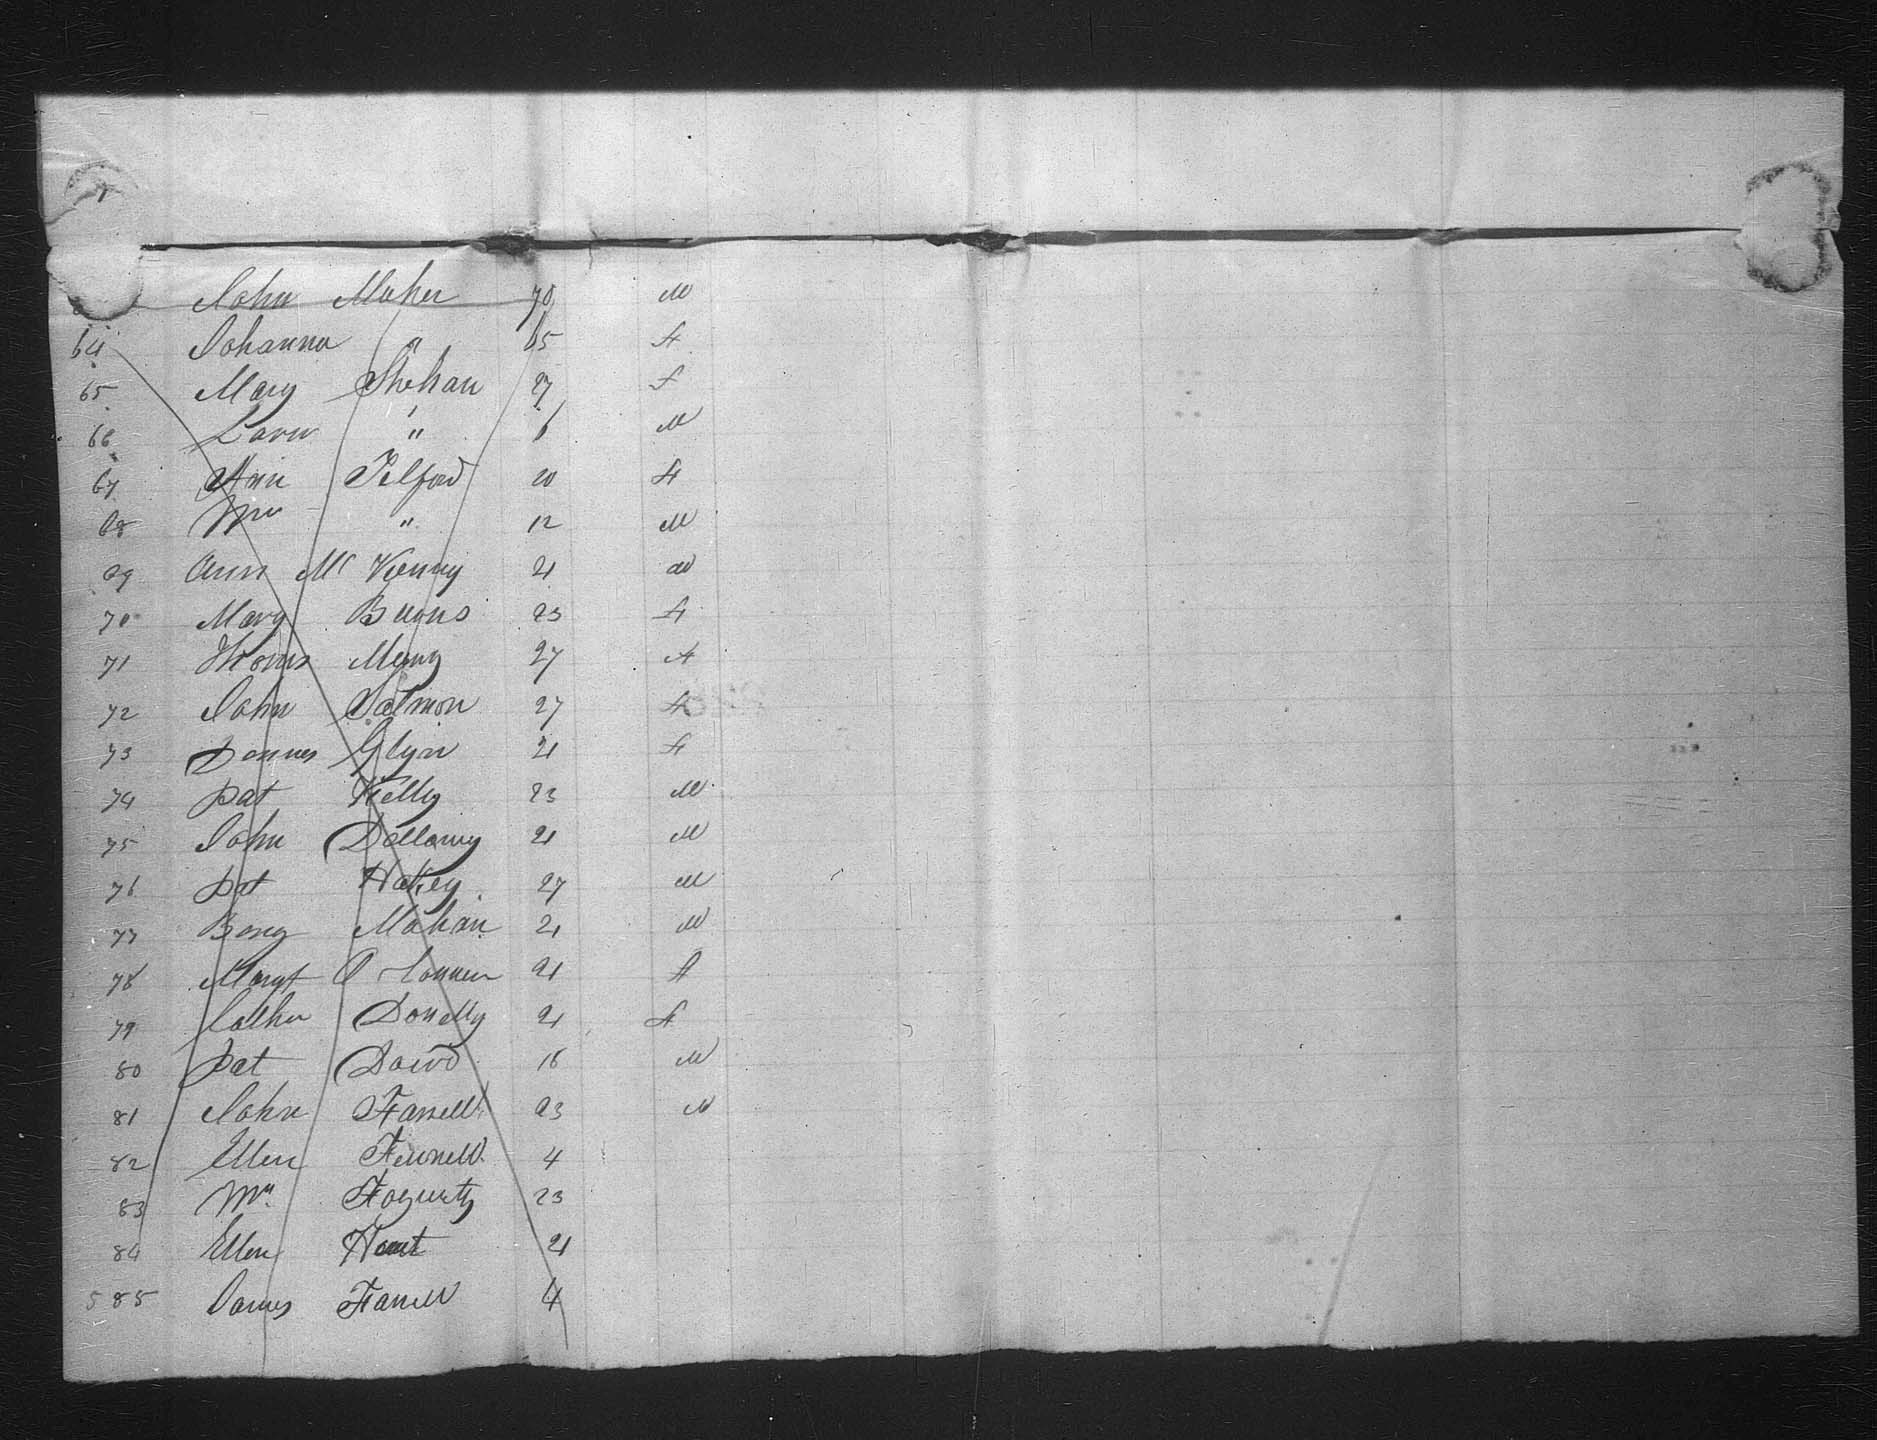 John Maher 70 M
64 Johanna " 65 F
65 Mary Shehan 27 F
66 " 6 M
67 Ann Telford 20 F
68 Wm " 12 M
69 Ann Mc Kenny 21
70 Mary Burns 23 F
71 Thoms 27 F
72 John Salmon 27 F
73 James Glyn 21 F
74 Pat Kelly 23 M
75 John Dellamy 21 M
76 Pat 27 M
77 Mahan 21 M
78 Margt O Connor 21 F
79 Cather Donelly 21 F
80 Pat 16 M
81 John Farrell 23 M
82 Ellen Fennell 4
83 Wm Fogurty 23
84 Ellen 21
585 James Farrell 4